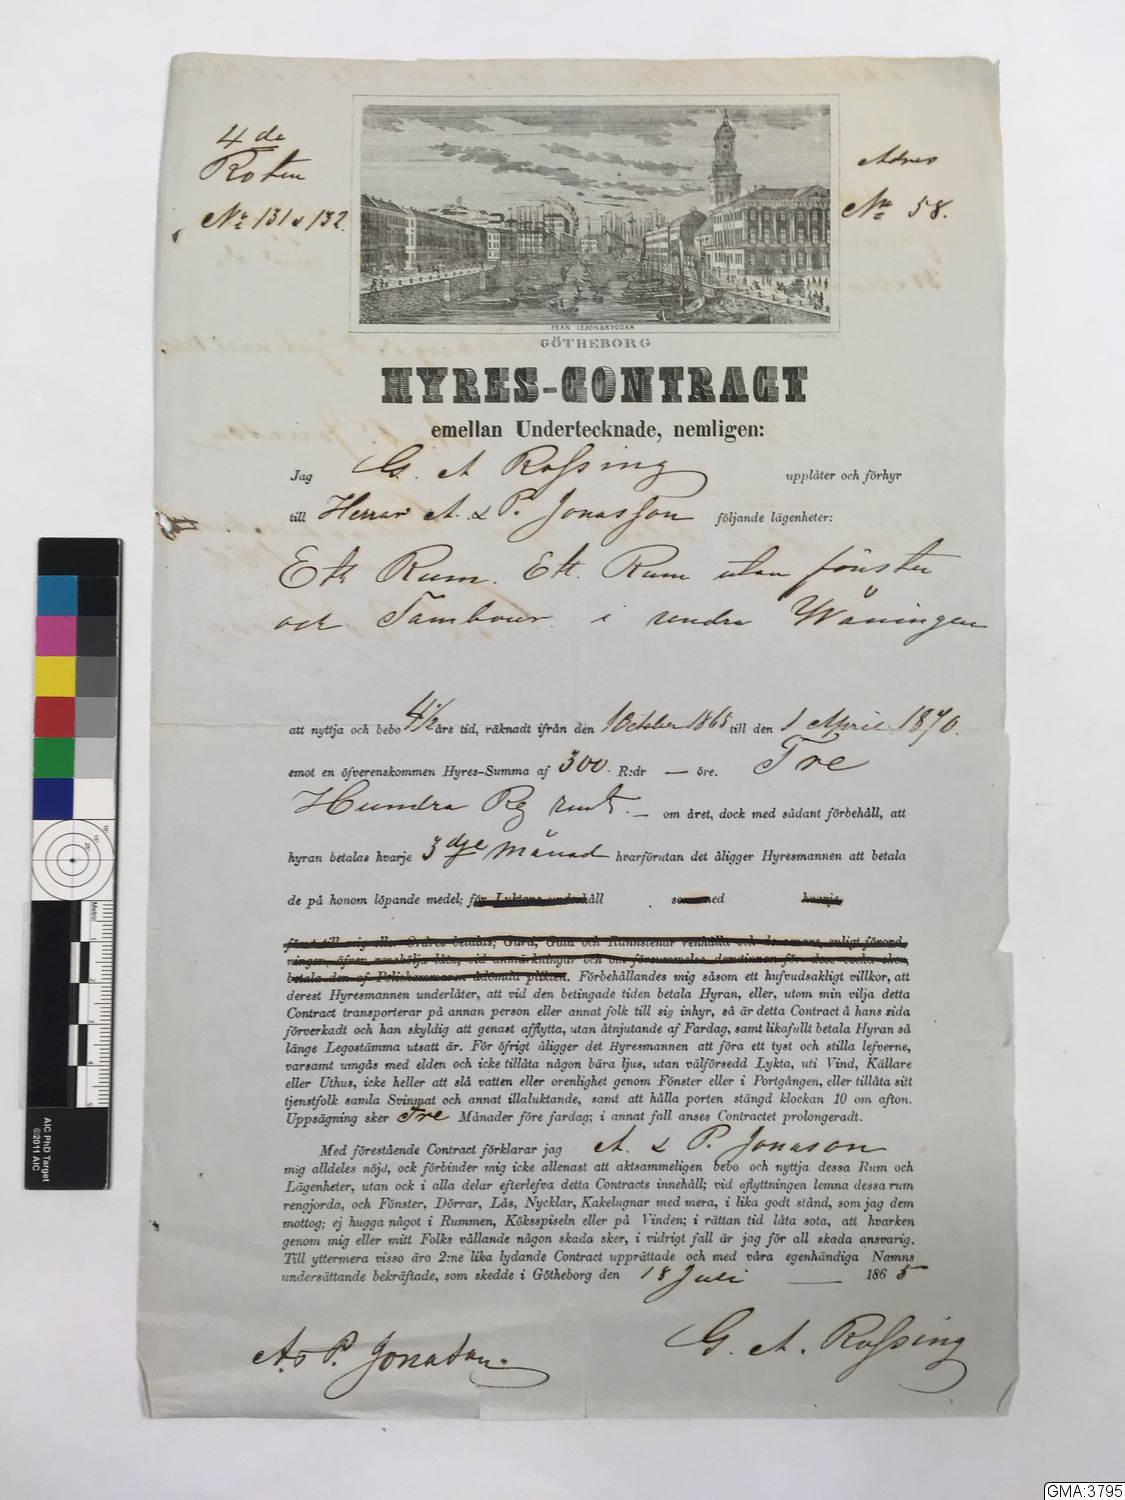 4de
Roten
No 131 & 132.
Adres
No 58.
FRÅN LEJONBRYGGAN
GÖTHEBORG
HYRES-CONTRACT
emellan Undertecknade, nemligen:
Jag G. A Rossing upplåter och förhyr
till Herrar A. & P. Jonasson följande lägenheter:
Ett Rum. Ett. Rum utan fönster
och Tambour. i undra Wåningen
att nyttja och bebo 4 1/2 års tid, räknadt ifrån den 1 October 1865 till den 1 April 1870.
emot en öfverenskommen Hyres-Summa af 300. R:dr — öre. Tre
Hundra Rg rmt. — om året, dock med sådant förbehåll, att
hyran betalas hvarje 3dje Månad hvarförutan det åligger Hyresmannen att betala
de på honom löpande medel; för Lyktans underhåll samt med hvarje
förut till mig eller Ordres betalas; Gård, Gata och Rännstenar renhålla och desamma, enligt förord-
ningen, vid anmärkningar och om försummelse
betala den af Poliskammaren ådömda plikten. Förbehållandes mig såsom ett hufvudsakligt villkor, att
derest Hyresmannen underlåter, att vid den betingade tiden betala Hyran, eller, utom min vilja detta
Contract transporterar på annan person eller annat folk till sig inhyr, så är detta Contract å hans sida
förverkadt och han skyldig att genast afflytta, utan åtnjutande af Fardag, samt likafullt betala Hyran så
länge Legostämma utsatt är. För öfrigt åligger det Hyresmannen att föra ett tyst och stilla lefverne,
varsamt umgås med elden och icke tillåta någon bära ljus, utan välförsedd Lykta, uti Vind, Källare
eller Uthus, icke heller att slå vatten eller orenlighet genom Fönster eller i Portgången, eller tillåta sitt
tjenstfolk samla Svinmat och annat illaluktande, samt att hålla porten stängd klockan 10 om afton.
Uppsägning sker Tre Månader före fardag; i annat fall anses Contractet prolongeradt.
Med förestående Contract förklarar jag A. & P. Jonason
mig alldeles nöjd, ock förbinder mig icke allenast att aktsammeligen bebo och nyttja dessa Rum och
Lägenheter, utan ock i alla delar efterlefva detta Contracts innehåll; vid aflyttningen lemna dessa rum
rengjorda, och Fönster, Dörrar, Lås, Nycklar, Kakelugnar med mera, i lika godt stånd, som jag dem
mottog; ej hugga något i Rummen, Köksspiseln eller på Vinden; i rättan tid låta sota, att hvarken
genom mig eller mitt Folks vållande någon skada sker, i vidrigt fall är jag för all skada ansvarig.
Till yttermera visso äro 2:ne lika lydande Contract upprättade och med våra egenhändiga Namns
undersättande bekräftade, som skedde i Götheborg den 18 Juli — 1865
A. & P. Jonason.
G. A. Rossing
AIC PhD Target
©2011 AIC
Metric
GMA:3795